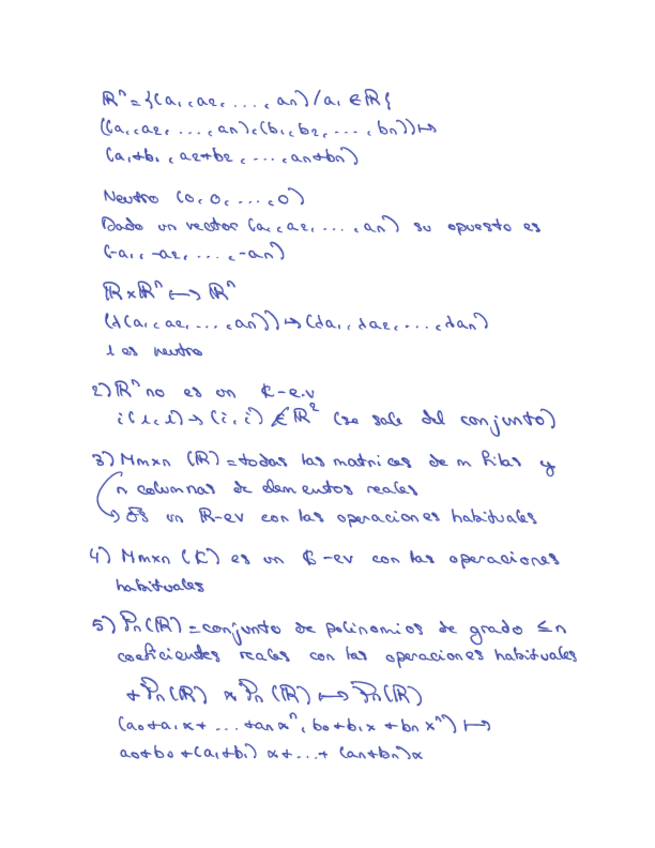 ℝⁿ = {(a₁, a₂, ..., aₙ) / a₁ ∈ ℝ}
((a₁, a₂, ..., aₙ), (b₁, b₂, ..., bₙ)) ↦
(a₁+b₁, a₂+b₂, ..., aₙ+bₙ)
Neutro (0, 0, ..., 0)
Dado un vector (a₁, a₂, ..., aₙ) su opuesto es
(-a₁, -a₂, ..., -aₙ)
ℝ × ℝⁿ ↦ ℝⁿ
(λ(a₁, a₂, ..., aₙ)) → (λa₁, λa₂, ..., λaₙ)
1 es neutro
2) ℝⁿ no es un ℂ-e.v
i(1, 1) → (i, i) ∉ ℝ² (se sale del conjunto)
3) Mmxn (ℝ) = todas las matrices de m filas y
n columnas de elementos reales
↳ Es un ℝ-ev con las operaciones habituales
4) Mmxn (ℂ) es un ℂ-ev con las operaciones
habituales
5) Pn(ℝ) = conjunto de polinomios de grado ≤ n
coeficientes reales con las operaciones habituales
+ Pn(ℝ) × Pn(ℝ) ↦ Pn(ℝ)
(a₀+a₁x+ ... +aₙxⁿ, b₀+b₁x+bₙxⁿ) ↦
a₀+b₀+(a₁+b₁)x+...+(aₙ+bₙ)x